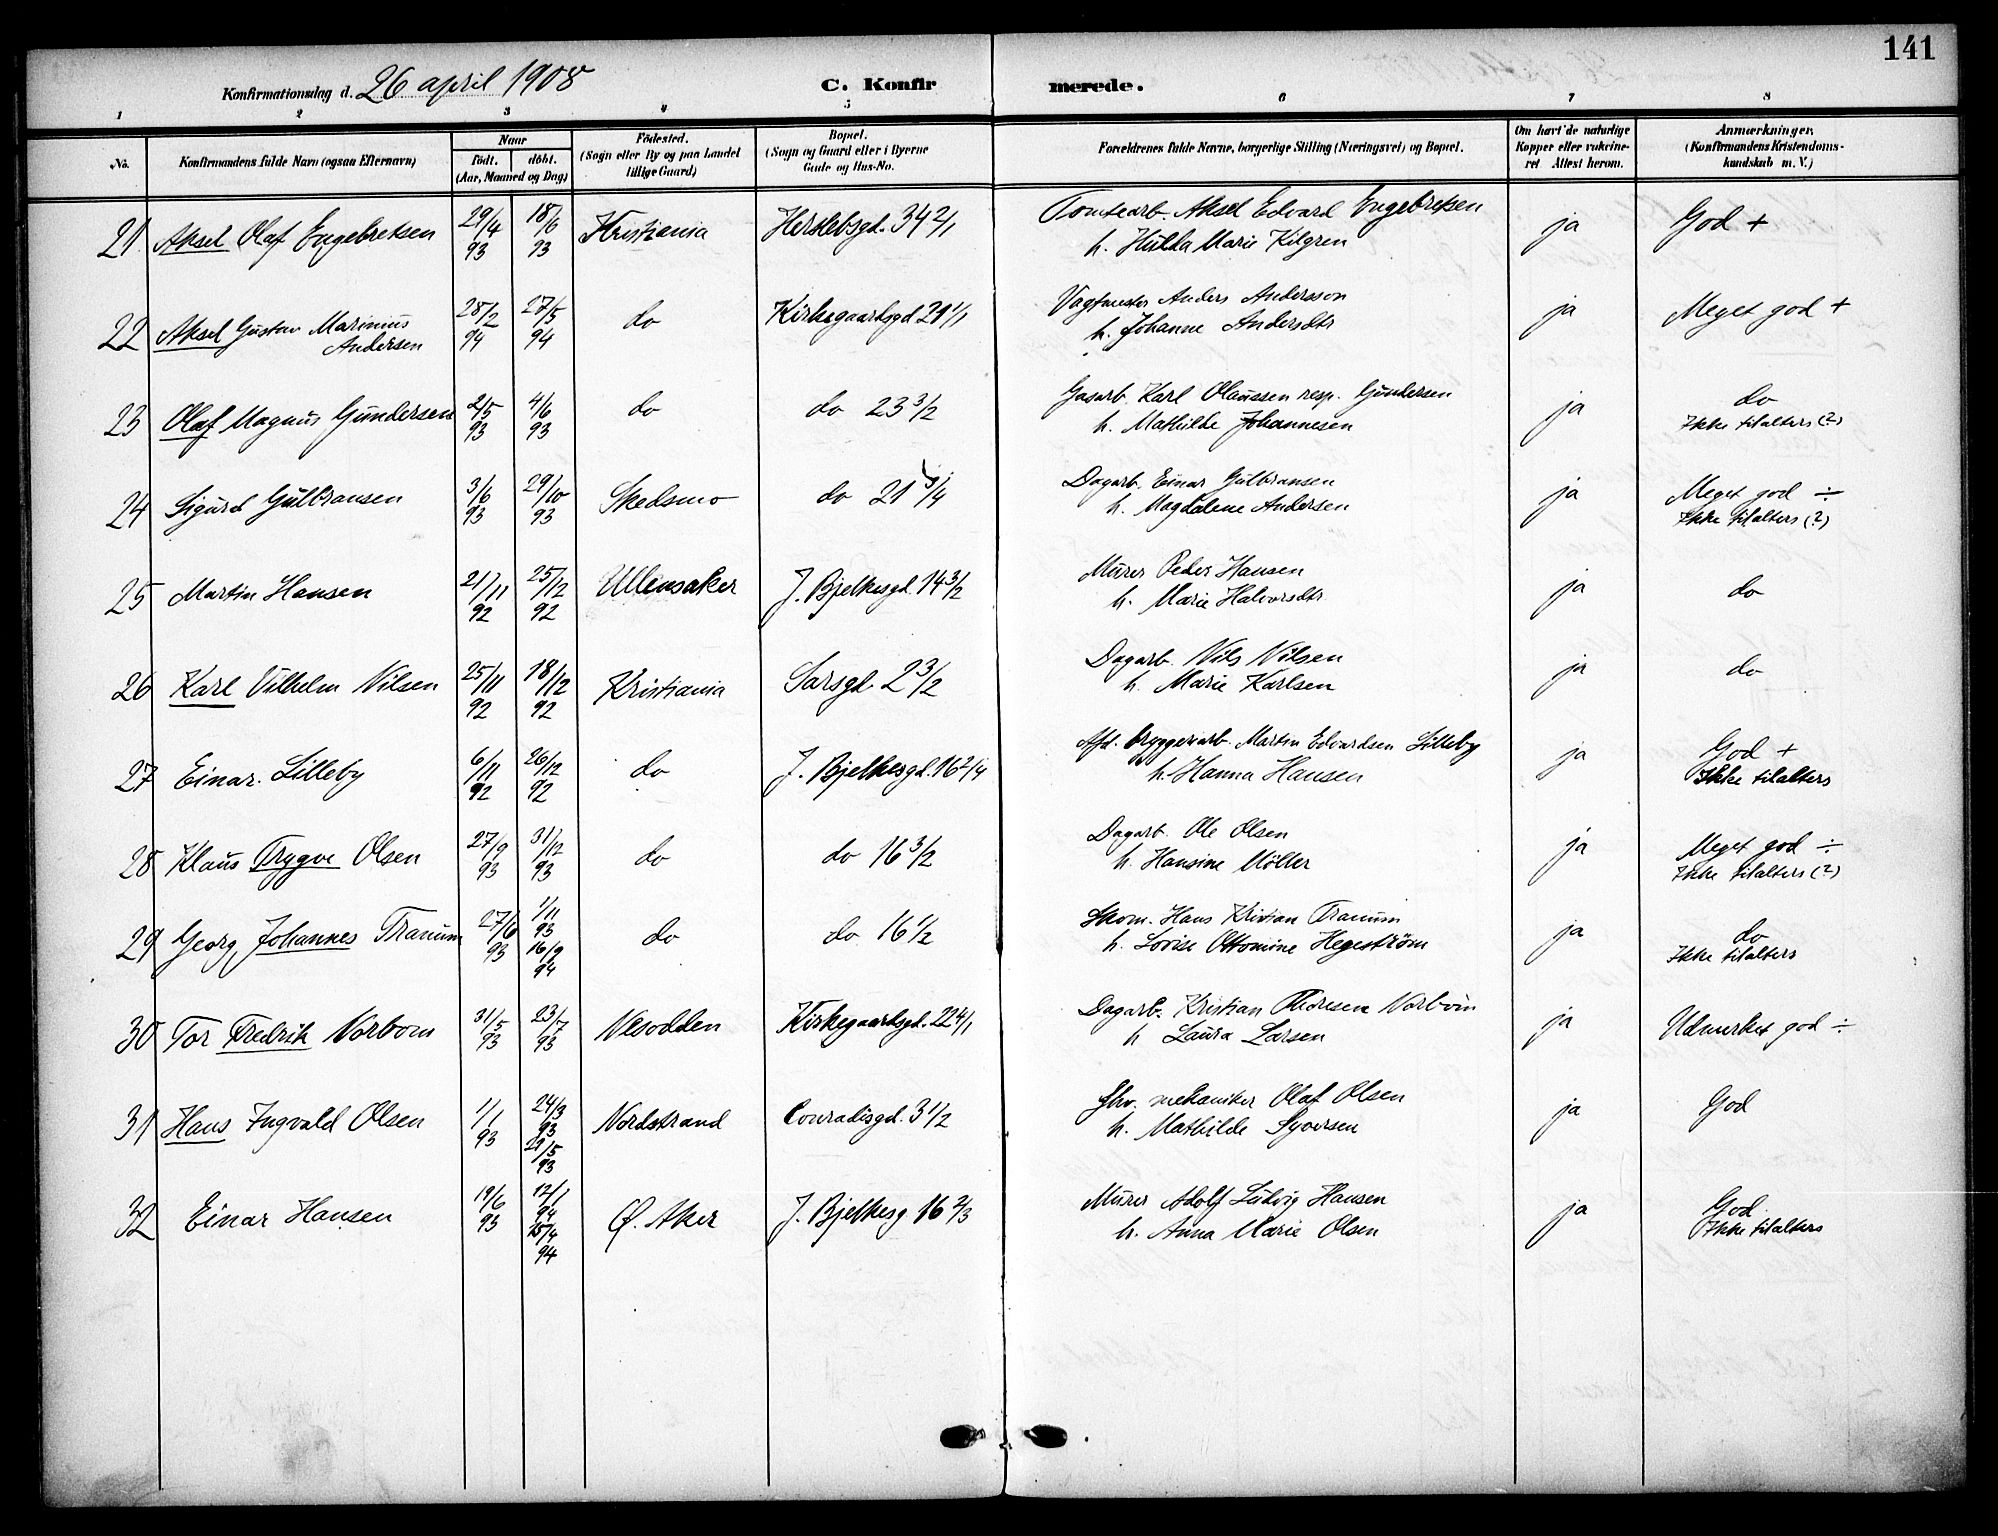 141
Konfirmationsdag d. 26 april 1908 C. Konfirmerede.
1 2 3 4 5 6 7 8
No. Konfirmandens fulde Navn (ogsaa Efternavn) Naar født. døbt. (Aar, Maaned og Dag) Fødested. (Sogn eller By og paa Landet tillige Gaard) Bopæl. (Sogn og Gaard eller i Byerne Gade og Hus-No. Forældrenes fulde Navne, borgerlige Stilling (Næringsvei) og Bopæl. Om havt de naturlige Kopper eller vakcineret Attest herom. Anmærkninger. (Konfirmandens Kristendomskundskab m. V.)
21 Aksel Olaf Engebretsen 29/4 93 18/6 93 Kristiania Herslebsgd. 34 2/1 Tomtearb. Aksel Edvard Engebretsen ja God +
h. Hulda Marie Kilgren
22 Aksel Gustav Marinius Andersen 28/2 94 27/5 94 do Kirkegaardsgd 21 1/1 Vagtmester Anders Andersson ja Meget god +
h. Johanne Andersdtr
23 Olaf Magnus Gundersen 2/5 93 4/6 93 do do 23 3/2 Gasarb. Karl Olaussen resp. Gundersen ja do
h. Mathilde Johannesen Ikke tilalters (?)
24 Sigurd Gulbransen 3/6 93 29/10 93 Skedsmo do 21 3/4 Dagarb. Einar Gulbransen ja Meget god ÷
h. Magdalene Andersen Ikke tilalters (?)
25 Martin Hansen 21/11 92 25/12 92 Ullensaker J. Bjelkesgd. 14 3/2 Murer Peder Hansen ja do
h. Marie Halvorsdtr.
26 Karl Vilhelm Nilsen 25/11 92 18/12 92 Kristiania Sarsgd. 2 3/2 Dagarb. Nils Nilsen ja do
h. Marie Karlsen
27 Einar. Lilleby 6/11 92 26/12 92 do J. Bjelkesgd. 16 2/4 Afd. bryggerarb. Martin Edvardsen Lilleby ja God +
h. Hanna Hansen Ikke tilalters
28 Klaus Trygve Olsen 27/9 93 31/12 93 do do 16 3/2 Dagarb. Ole Olsen ja Meget god ÷
h. Hansine Møller Ikke tilalters (?)
29 Georg Johannes Tranum 27/6 93 1/11 93 16/9 94 do do 16 1/2 Skom. Hans Kristian Tranum ja do
h. Lovise Ottomine Hegestrøm Ikke tilalters
30 Tor Fredrik Norbom 31/5 93 23/7 93 Nesodden Kirkegaardsgd. 22 4/1 Dagarb. Kristian Norbom ja Udmerket god ÷
h Laura Larsen
31 Hans Ingvald Olsen 1/1 93 24/3 93 21/5 93 Nordstrand Conradisgd. 3 1/2 mekaniker Olaf Olsen ja God
h. Mathilde Syversen
32 Einar Hansen 19/6 93 12/1 94 15/4 94 Ø. Aker J. Bjelkesg 16 2/3 Murer Adolf Ludvig Hansen ja God.
h. Anna Marie Olsen Ikke tilalters